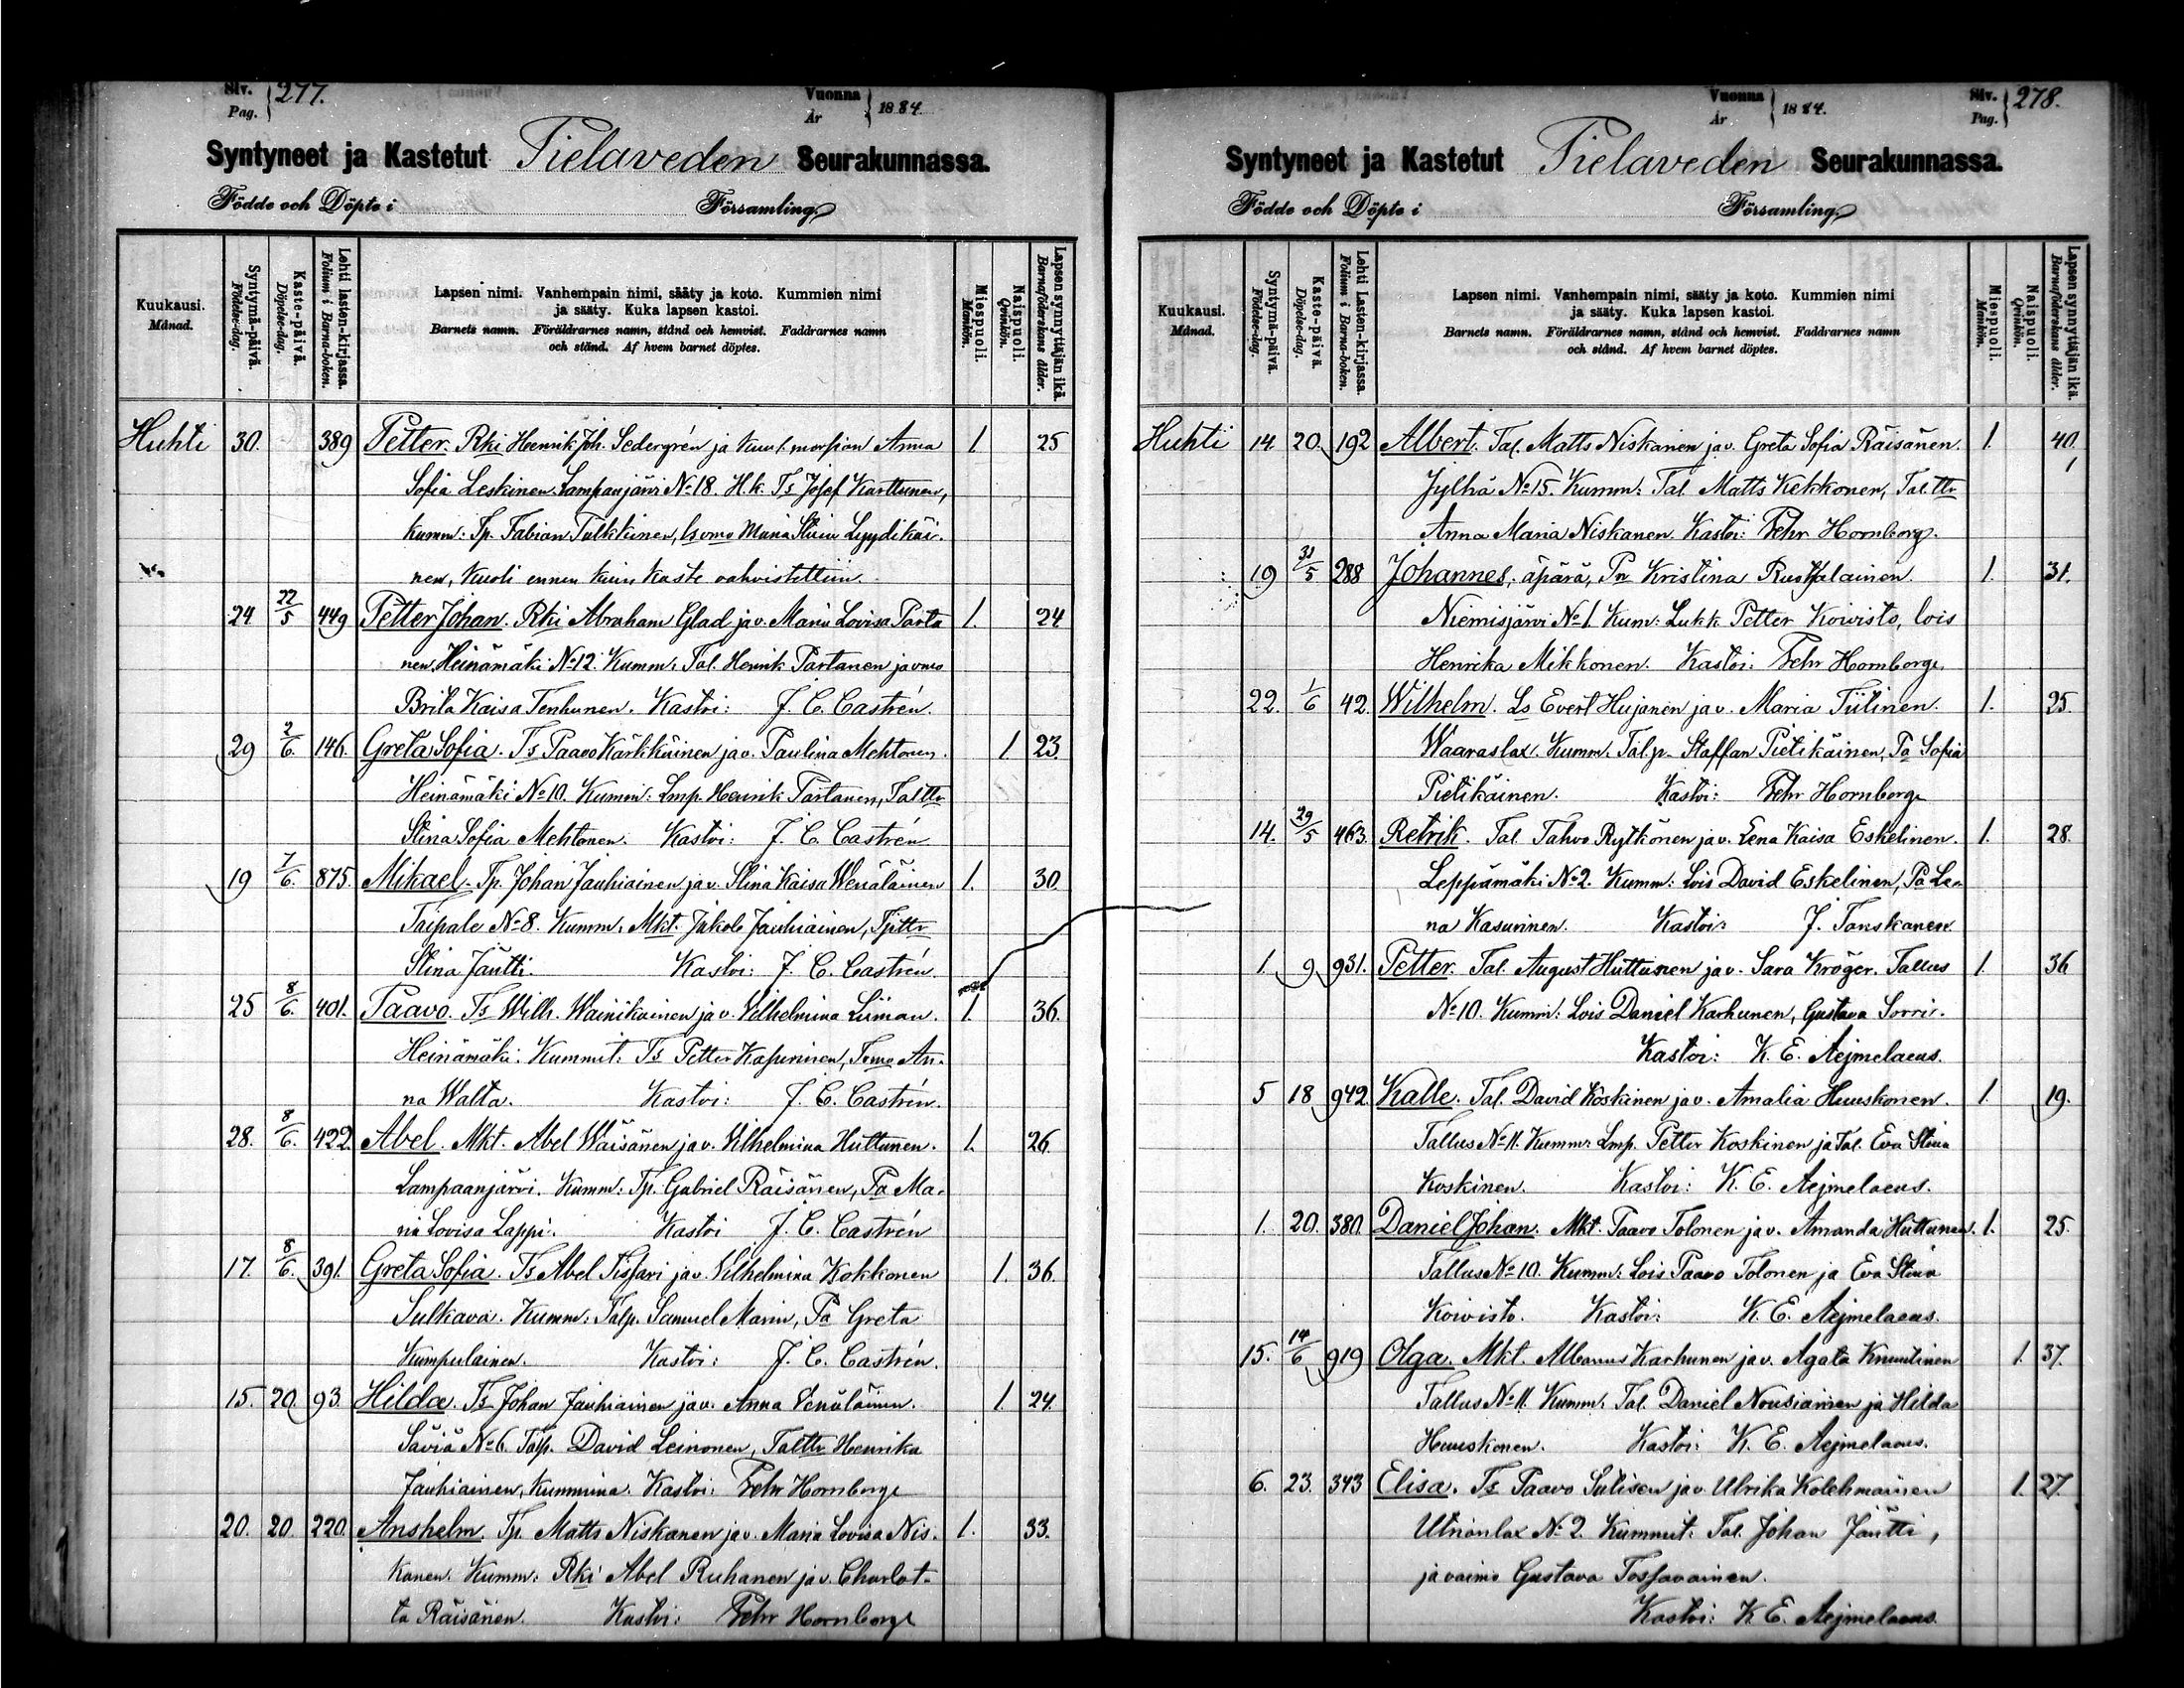 Siv. Pag. 277. Vuonna År 1884.
Syntyneet ja Kastetut Pielaveden Seurakunnassa.
Födde och Döpte i Församling
Kuukausi. Månad. Syntymä-päivä. Födelse-dag. Kaste-päivä. Döpelse-dag. Lehti lasten-kirjassa. Folium i Barna-boken. Lapsen nimi. Vanhempain nimi, sääty ja koto. Kummien nimi ja sääty. Kuka lapsen kastoi. Barnets namn. Föräldrarnes namn, stånd och hemvist. Faddrarnes namn och stånd. Af hvem barnet döptes. Miespuoli. Mankön. Naispuoli. Qvinkön. Lapsen synnyttäjän ikä. Barnaföderskans ålder.
Huhti 30. 389 Petter. Rki Henrik Joh. Sedergrén ja Anna 1. 25
Sofia Leskinen. Lampaanjärvi No 18. H.k. Ts Josef Karttunen,
kumm: Tp. Fabian Tulkkinen, Maria Stina Lyydikäi-
nen, Kuoli ennen kuin kaste vahvistettiin.
24. 22/5 449 Petter Johan. Rki Abraham Glad ja v. Maria Lovisa Parta 1. 24
nen. Heinämäki No 12. Kumm: Tal. Henrik Partanen ja vmo
Brita Kaisa Tenhunen. Kastoi: J. C. Castrén.
29 2/6. 146. Greta Sofia. Ts Paavo Kärkkäinen ja v. Paulina Mehtonen. 1. 23.
Heinämäki No 10. Kumm: Lmp. Henrik Partanen, Tal ttr
Stina Sofia Mehtonen. Kastoi: J. C. Castrén
19 7/6. 875. Mikael. Tp. Johan Jauhiainen ja v. Stina Kaisa Wenäläinen 1. 30.
Taipale No 8. Kumm: Mkt. Jakob Jauhiainen, Tp ttr
Stina Jäntti. Kastoi: J. C. Castrén.
25 8/6. 401. Paavo. Ts Wilh. Wainikainen ja v. Vilhelmina Liiman. 1. 36.
Heinämäki. Kummit: Ts Petter An-
na Walta. Kastoi: J. C. Castrén.
28. 8/6. 422 Abel. Mkt. Abel Wäisänen ja v. Vilhelmina Huttunen. 1. 26.
Lampaanjärvi. Kumm: Tp. Gabriel Räisänen, Pa Ma-
ria Lovisa Lappi. Kastoi J. C. Castrén
17. 8/6. 391. Greta Sofia. Ts Abel Tissari ja v. Vilhelmina Kokkonen 1. 36.
Sulkava. Kumm: Talp. Samuel Marin, Pa Greta
Kumpulainen. Kastoi: J. C. Castrén.
15. 20. 93. Hilda. Ts Johan Jauhiainen ja v. Anna Venäläinen. 1. 24.
Säviä No 6. Talp. David Leinonen, Tal ttr Henrika
Jauhiainen, Kummina. Kastoi: Fehr Hornborg
20. 20. 220. Anshelm. Tp. Matts Niskanen ja v. Maria Lovisa Nis- 1. 33.
kanen. Kumm: Rki Abel Ruhanen ja v. Charlot-
ta Räisänen. Kastoi: Fehr Hornborg
Vuonna År 1884. Siv. Pag. 278.
Syntyneet ja Kastetut Pielaveden Seurakunnassa.
Födde och Döpte i Församling
Kuukausi. Månad. Syntymä-päivä. Födelse-dag. Kaste-päivä. Döpelse-dag. Lehti Lasten-kirjassa. Folium i Barna-boken. Lapsen nimi. Vanhempain nimi, sääty ja koto. Kummien nimi ja sääty. Kuka lapsen kastoi. Barnets namn. Föräldrarnes namn, stånd och hemvist. Faddrarnes namn och stånd. Af hvem barnet döptes. Miespuoli. Mankön. Naispuoli. Qvinkön. Lapsen synnyttäjän ikä. Barnaföderskans ålder.
Huhti 14. 20. 192 Albert. Tal. Matts Niskanen ja v. Greta Sofia Räisänen. 1. 40.
Jylhä No 15. Kumm: Tal. Matts Kekkonen, Tal. ttr
Anna Maria Niskanen. Kastoi: Fehr Hornborg.
19 31/5. 288 Johannes, äpärä, Pn Kristina Ruotsalainen. 1. 31.
Niemisjärvi No 1. Kum: Lukk. Petter Koivisto, lois
Henrika Mikkonen. Kastoi: Fehr Hornborg.
22. 1/6 42. Wilhelm. Ls Evert Hujanen ja v. Maria Tiitinen. 1. 25.
Waaraslax. Kumm. Talp. Staffan Pietikäinen, Pa Sofia
Pietikäinen. Kastoi: Fehr Hornborg
14. 29/5 463. Retrik. Tal. Tahvo Rytkönen ja v. Lena Kaisa Eskelinen. 1. 28.
Leppämäki No 2. Kumm: Lois David Eskelinen, Pa Le-
na Kasurinen. Kastoi: J. Tanskanen
1. 9 931. Petter. Tal. August Huttunen ja v. Sara Kröger. Tallus 1. 36
No 10. Kumm: Lois Daniel Karhunen, Gustava Sorri.
Kastoi: K. E. Aejmelaeus.
5 18 942. Kalle. Tal. David Koskinen ja v. Amalia Huuskonen. 1. 19.
Tallus No 11. Kumm: Lmp. Petter Koskinen ja Tal. Eva Stina
Koskinen. Kastoi: K. E. Aejmelaeus.
1. 20. 380. Daniel Johan. Mkt. Paavo Tolonen ja v. Amanda Huttunen. 1. 25.
Tallus No 10. Kumm: Lois Paavo Tolonen ja Eva Stina
Koivisto. Kastoi: K. E. Aejmelaeus.
15. 14/6 919 Olga. Mkt. Albanus Karhunen ja v. Agata Knuutinen 1. 37.
Tallus No 11. Kumm: Tal. Daniel Nousiainen ja Hilda
Huuskonen. Kastoi: K. E. Aejmelaeus.
6. 23. 343 Elisa. Ts Paavo Sutisen ja v. Ulrika Kolehmainen 1. 27.
Utrianlax No 2. Kummit: Tal. Johan Jäntti,
ja vaimo Gustava Tossavainen.
Kastoi: K. E. Aejmelaeus.